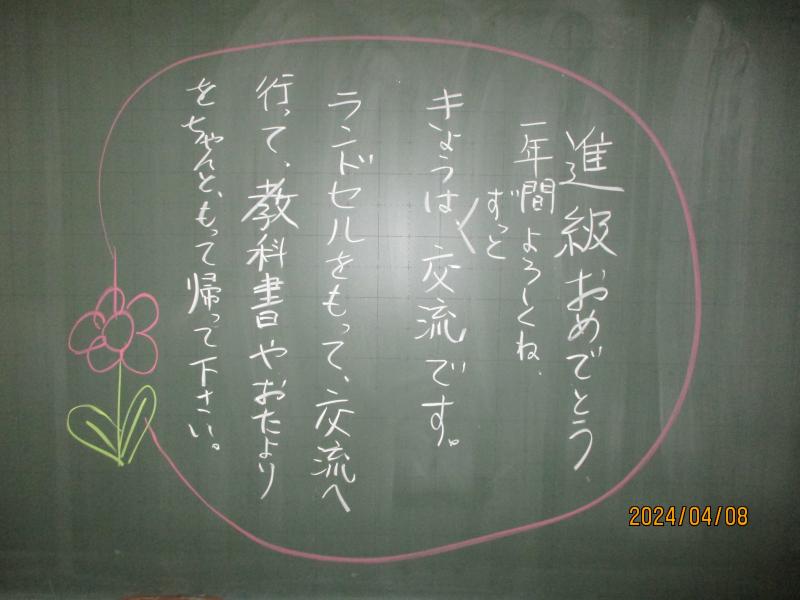 進級おめでとう
一年間よろしくね、
きょうは、ずっと交流です。
ランドセルをもって、交流へ
行って、教科書やおたより
をちゃんと、もって帰って下さい。
2024/04/08